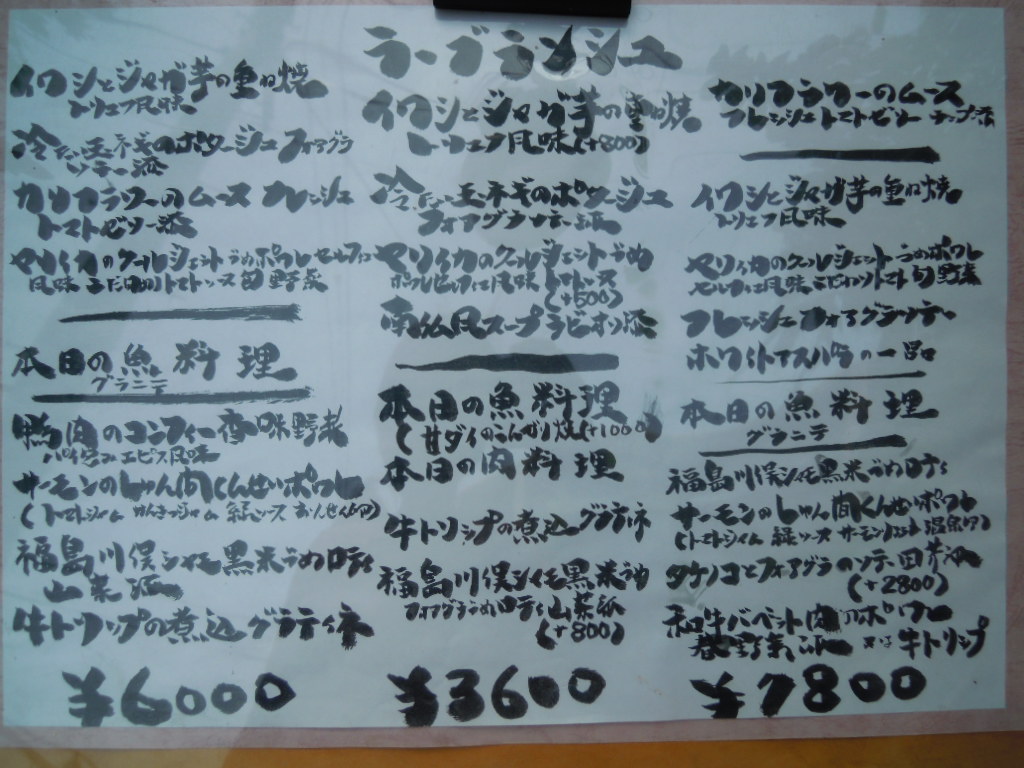 ラーブランシュ
イワシとジャガ芋の重ね焼
トリュフ風味
冷たい玉ネギのポタージュフォアグラ
ソテー添
カリフラワーのムース フレッシュ
トマトゼリー添
マリイカのクールジェットうめポワレセルフィユ
風味 こだわりトマトソース旬野菜
本日の魚料理
グラニテ
鴨肉のコンフィー香味野菜
パイ包みエピス風味
サーモンのしゅん間くんせいポワレ
(トマトジャム かんきつジャム 緑ソース おんせん卵)
福島川俣シャモ黒米うめロティ
山菜添
牛トリップの煮込グラティネ
¥6000
イワシとジャガ芋の重ね焼
トリュフ風味(+800)
冷たい玉ネギのポタージュ
フォアグラソテー添
マリイカのクールジェットうめ
ポワレセルフィユ風味 トマトソース
(+500)
南仏風スープラビオリ添
本日の魚料理
(甘ダイのこんがり焼(+1000)
本日の肉料理
牛トリップの煮込グラティネ
福島川俣シャモ黒米うめ
フォアグラうめロティ山菜添
(+800)
¥3600
カリフラワーのムース
フレッシュトマトゼリー チップ添
イワシとジャガ芋の重ね焼
トリュフ風味
マリイカのクールジェットうめポワレ
セルフィユ風味 こだわりトマト旬野菜
フレッシュフォアグラソテー
ホワイトアスパラの一皿
本日の魚料理
グラニテ
福島川俣シャモ黒米うめロティ
サーモンのしゅん間くんせいポワレ
(トマトジャム 緑ソース サーモン 温泉卵)
タケノコとフォアグラのソテー
(+2800)
和牛バベット肉 ポワレ
春野菜添 又は牛トリップ
¥7800